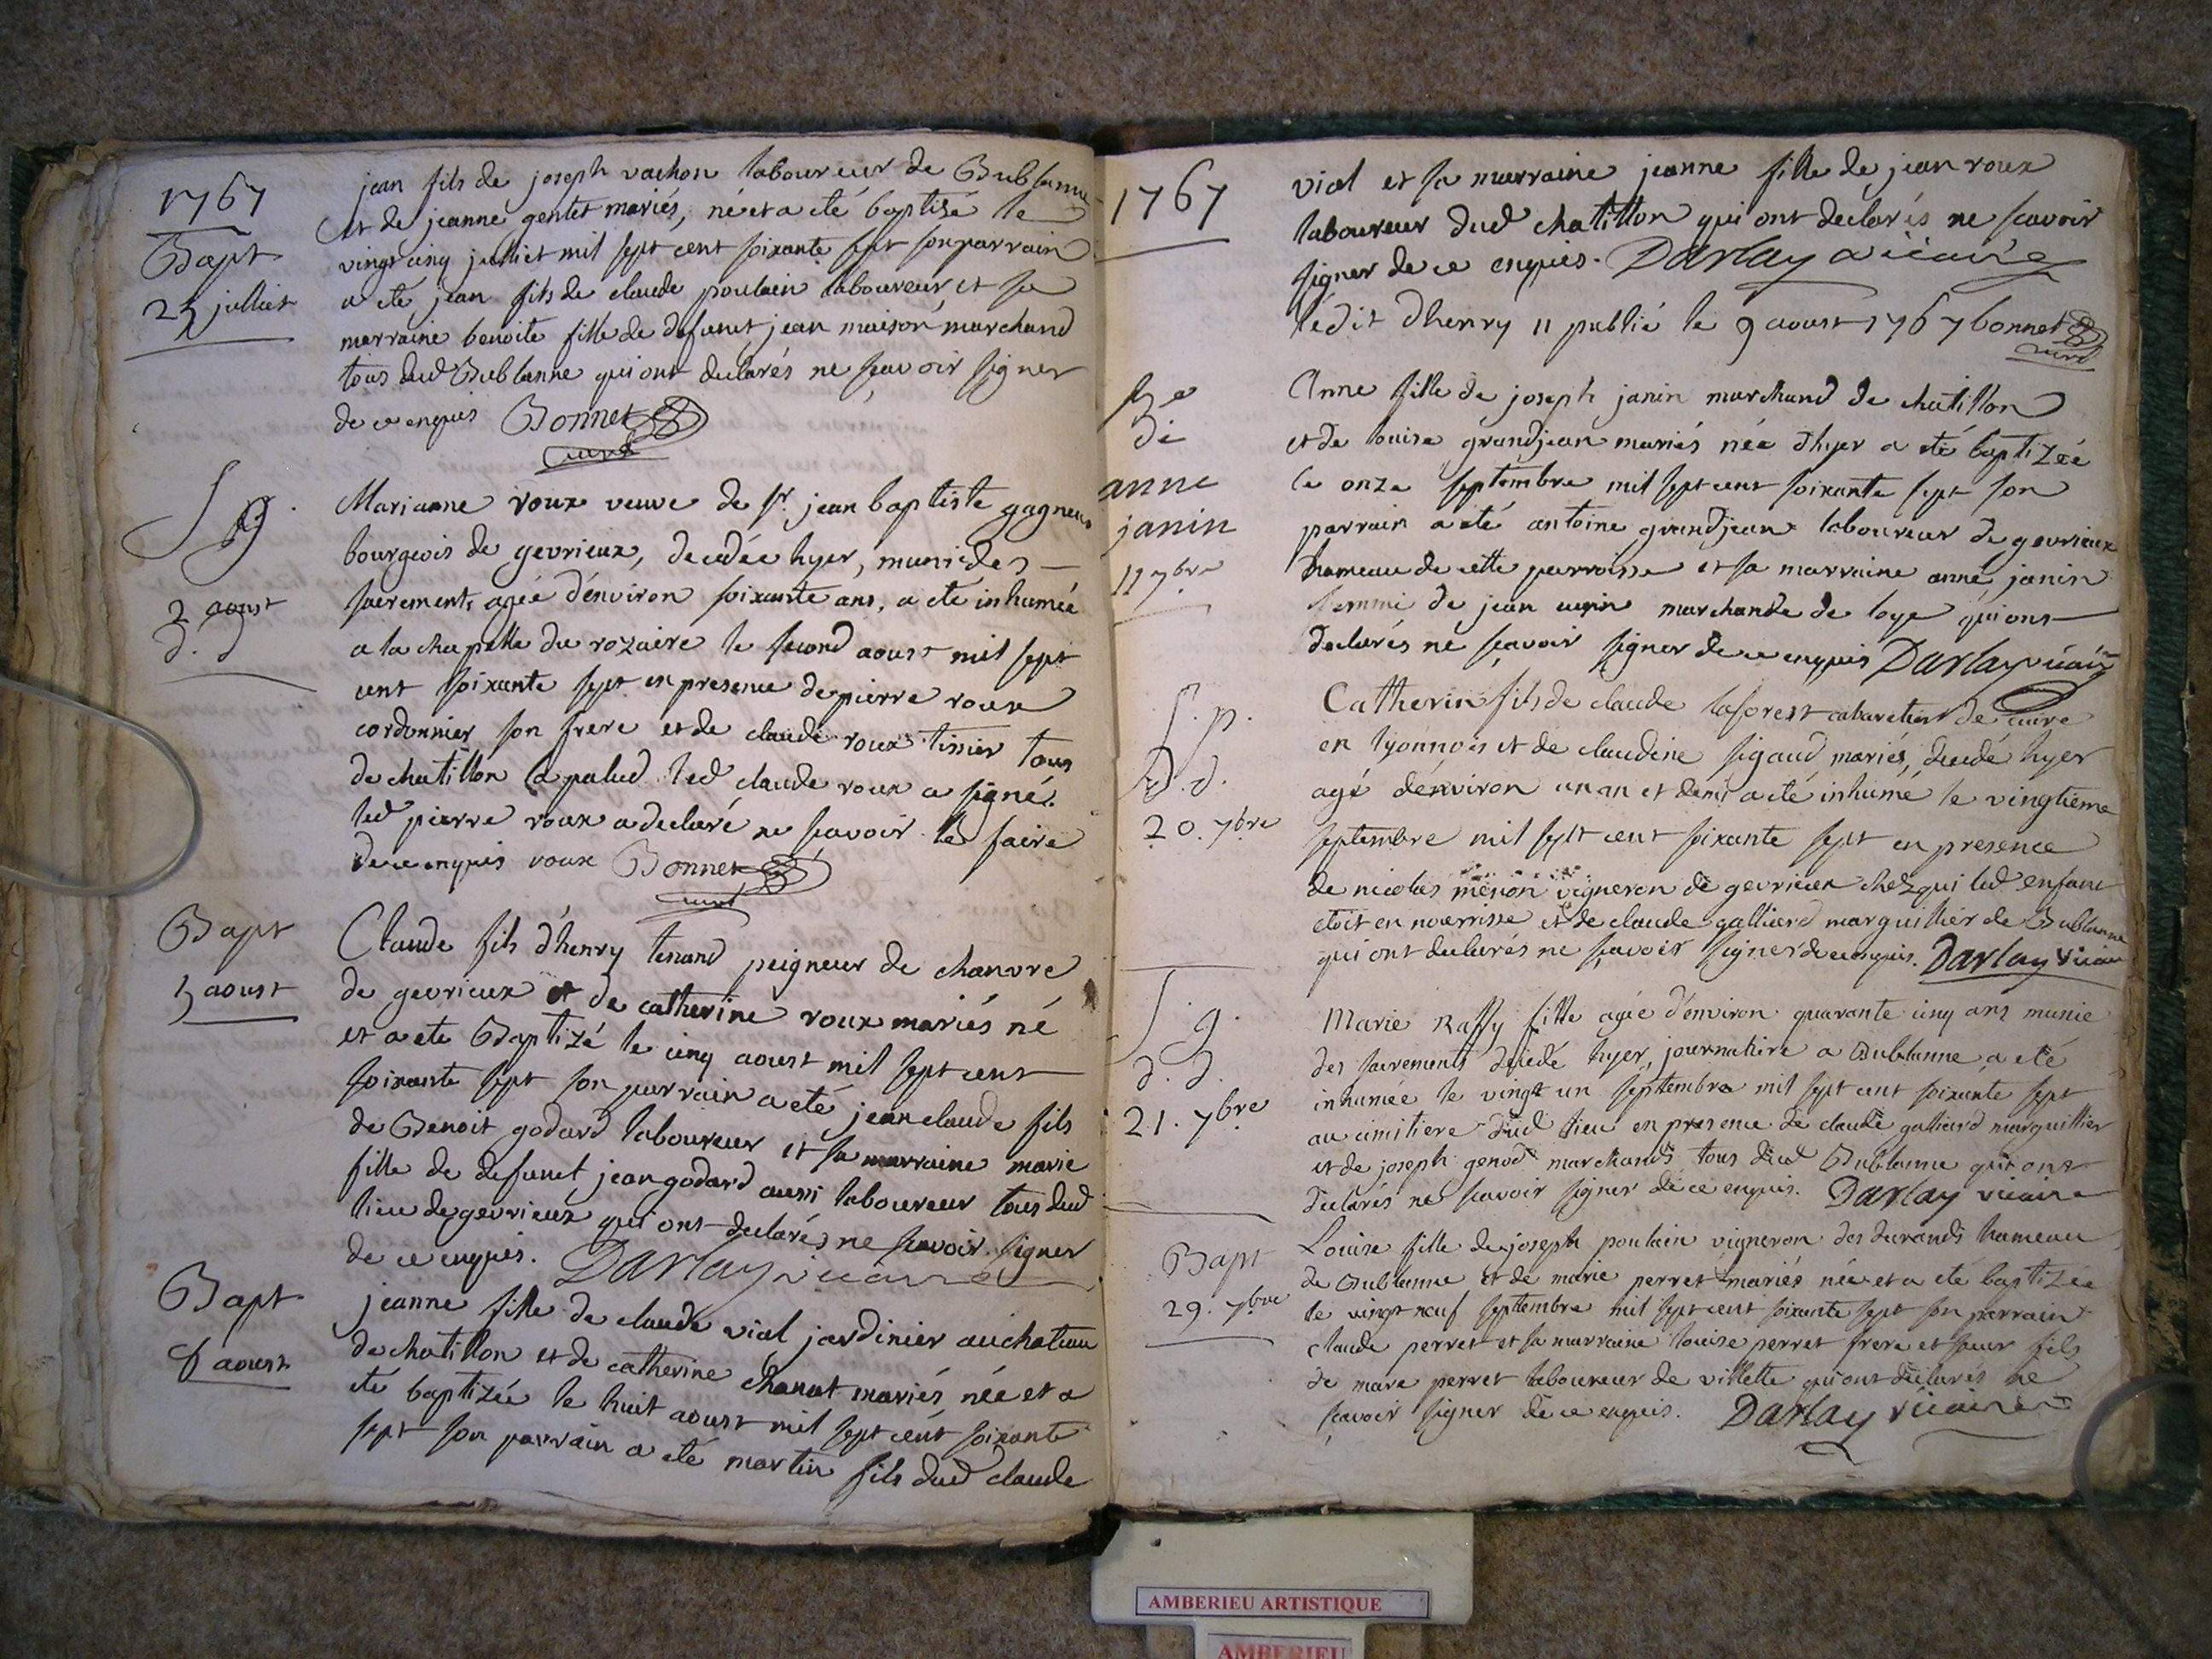 1767
Bapt
25 julliet
jean fils de joseph vachon laboureur de Bublanne
et de jeanne gentet mariés, né et a eté baptisé le
vingt cinq julliet mil sept cent soixante sept son parrain
a eté jean fils de claude poulain laboureur, et sa
marraine benoite fille de defunct jean maison marchand
tous dud Bublanne qui ont declarés ne sçavoir signer
de ce enquis Bonnet
curé
S g.
2 aoust
d. d
Marianne roux veuve de sr. jean baptiste gagneux
bourgeois de gevrieux, decedée hyer, munie des
sacrements agée d'environ soixante ans, a eté inhumée
a la chapelle du rozaire le second aoust mil sept
cent soixante sept en presence de pierre roux
cordonnier son frere et de claude roux tissier tous
de chatillon la palud led claude roux a signé.
led pierre roux a declaré ne scavoir le faire
de ce enquis roux Bonnet
curé
Bapt
5 aoust
Claude fils d'henry tenand peigneur de chanvre
de gevrieux et de catherine roux mariés né
et a ete Baptizé le cinq aoust mil sept cent
soixante sept son parrain a eté jean claude fils
de Benoit godard laboureur et sa marraine marie
fille de defunct jean godard aussi laboureur tous dud
lieu de gevrieux qui ont declarés ne scavoir signer
de ce enquis. Darlay vicaire
Bapt
8 aoust
jeanne fille de claude vial jardinier au chateau
de chatillon et de catherine chanut mariés, née et a
eté baptizée le huit aoust mil sept cent soixante
sept son parrain a eté martin fils dud claude
1767
vial et sa marraine jeanne fille de jean roux
laboureur dud chatillon qui ont declarés ne scavoir
signer de ce enquis. Darlay vicaire
l'édit d'henry 11 publié le 9 aoust 1767 bonnet
curé
de
anne
janin
11 7bre
Anne fille de joseph janin marchand de chatillon
et de louise grandjean mariés née d'hyer a eté baptizée
le onze septembre mil sept cent soixante sept son
parrain a eté antoine grandjean laboureur de gevrieux
hameau de cette parroisse et sa marraine anne janin
femme de jean marchande de loye qui ont
declarés ne sçavoir signer de ce enquis Darlay vicaire
S. p.
d. d.
20. 7bre
Catherin fils de claude laforest cabaretier de cuire
en lyonnois et de claudine sigaud mariés, decedé hyer
agé d'environ un an et demi a eté inhumé le vingtieme
septembre mil sept cent soixante sept en presence
de nicolas vigneron de gevrieux chez qui led enfant
etoit en nourrisse et de claude galliard marguillier de Bublanne
qui ont declarés ne sçavoir signer de ce enquis. Darlay vicaire
S. g.
d. d.
21. 7bre
Marie Raffy fille agée d'environ quarante cinq ans munie
des sacrements decedé hyer, journaliere a Bublanne a eté
inhumée le vingt un septembre mil sept cent soixante sept
au cimitiere dud lieu en presence de claude galliard marguillier
et de joseph genod marchands tous dud Bublanne qui ont
declarés ne scavoir signer de ce enquis. Darlay vicaire
Bapt
29. 7bre
Louise fille de joseph poulain vigneron des durands hameau
de Bublanne et de marie perret mariés née et a eté baptizée
le vingt neuf septembre mil sept cent soixante sept son parrain
claude perret et sa marraine louise perret frere et soeur fils
de marc perret laboureur de villette qui ont declarés ne
sçavoir signer de ce enquis. Darlay vicaire
AMBERIEU ARTISTIQUE
AMBERIEU